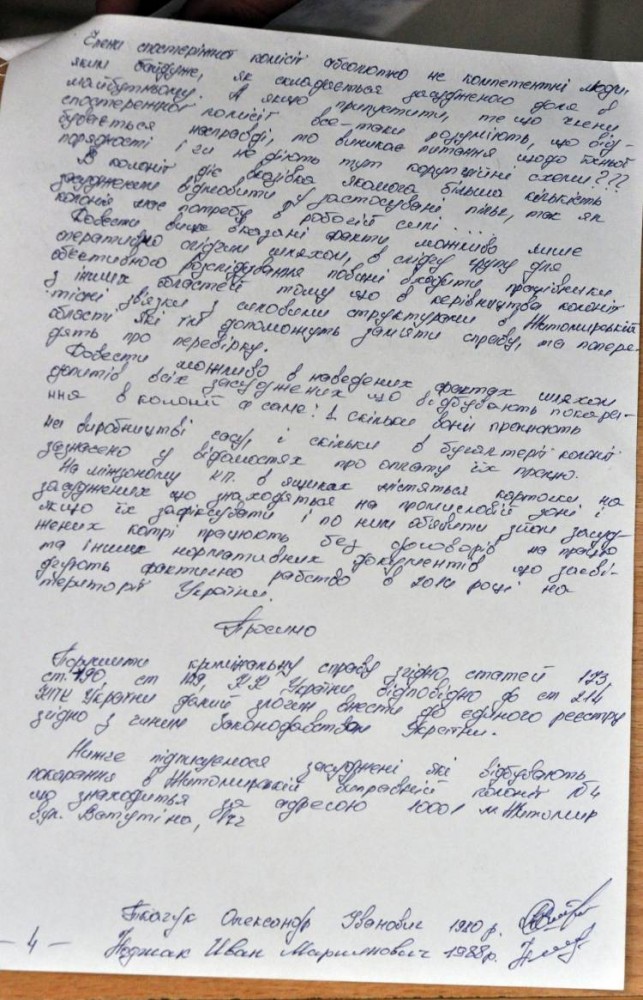 Члени спостерігної комісії абсолютно не компетентні люди,
яким байдуже, як складається засудженого доля в
майбутньому. А якщо припустити, те що члени
спостережної комісії все-таки розуміють, що від-
бувається насправді, то виникає питання щодо їхньої
порядності і чи не діють тут корупційні схеми???
В колонії діє вказівка якомога більшій кількість
засудженим відмовити у застосувані пільг, так як
колонія має потребу в робочій силі ...
Довести вище вказані факти можливо лише
оперативно слідчим шляхом, в слідчу групу для
обєктивного розслідування повині входити працівники
з інших областей тому що в керівництва колонії
тісні звязки з силовими структурами в Житомирській
області які їм допоможуть замяти справу, та попере-
дять про перевірку.
Довести можливо в наведених фактах шляхом
допитів всіх засуджених що відбувають покара-
ння в колонії а саме: скільки вони працюють
на виробництві часу, і скільки в бугалтерії колонії
зазначено у відомостях про оплату їх праці.
На міжзоному кп. в ящиках містяться карточки на
засуджених що знаходяться на промисловій зоні і
якщо їх зафіксувати і по ним обявити засуд-
жених котрі працюють без договорів на працю
та інших нормативних документів що засві-
дчують фактично рабство в 2014 році на
території України.
Просимо
Порушити кримінальну справу згідно статей 173,
ст. 190, ст 149, КК України відповідно до ст 214
КПК України даний злочин внести до єдиного реєстру
згідно з чиним Законодавством України.
Нижче підписуємося засуджені які відбувають
покарання в Житомирській виправній колонії №4
що знаходиться за адресою 10001 м. Житомир
вул. Ватутіна, 172
Ткачук Олександр Іванович 1980 р.
- 4 - Иван Мариянович 1988 р.